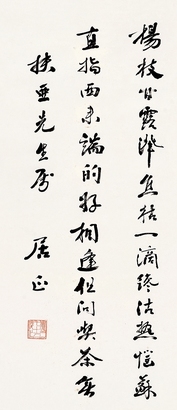 楊枝甘露濟焦枯一滴終沾熱惱蘇
直指西來端的好相逢但問喫茶無
扶亞先生屬
居正